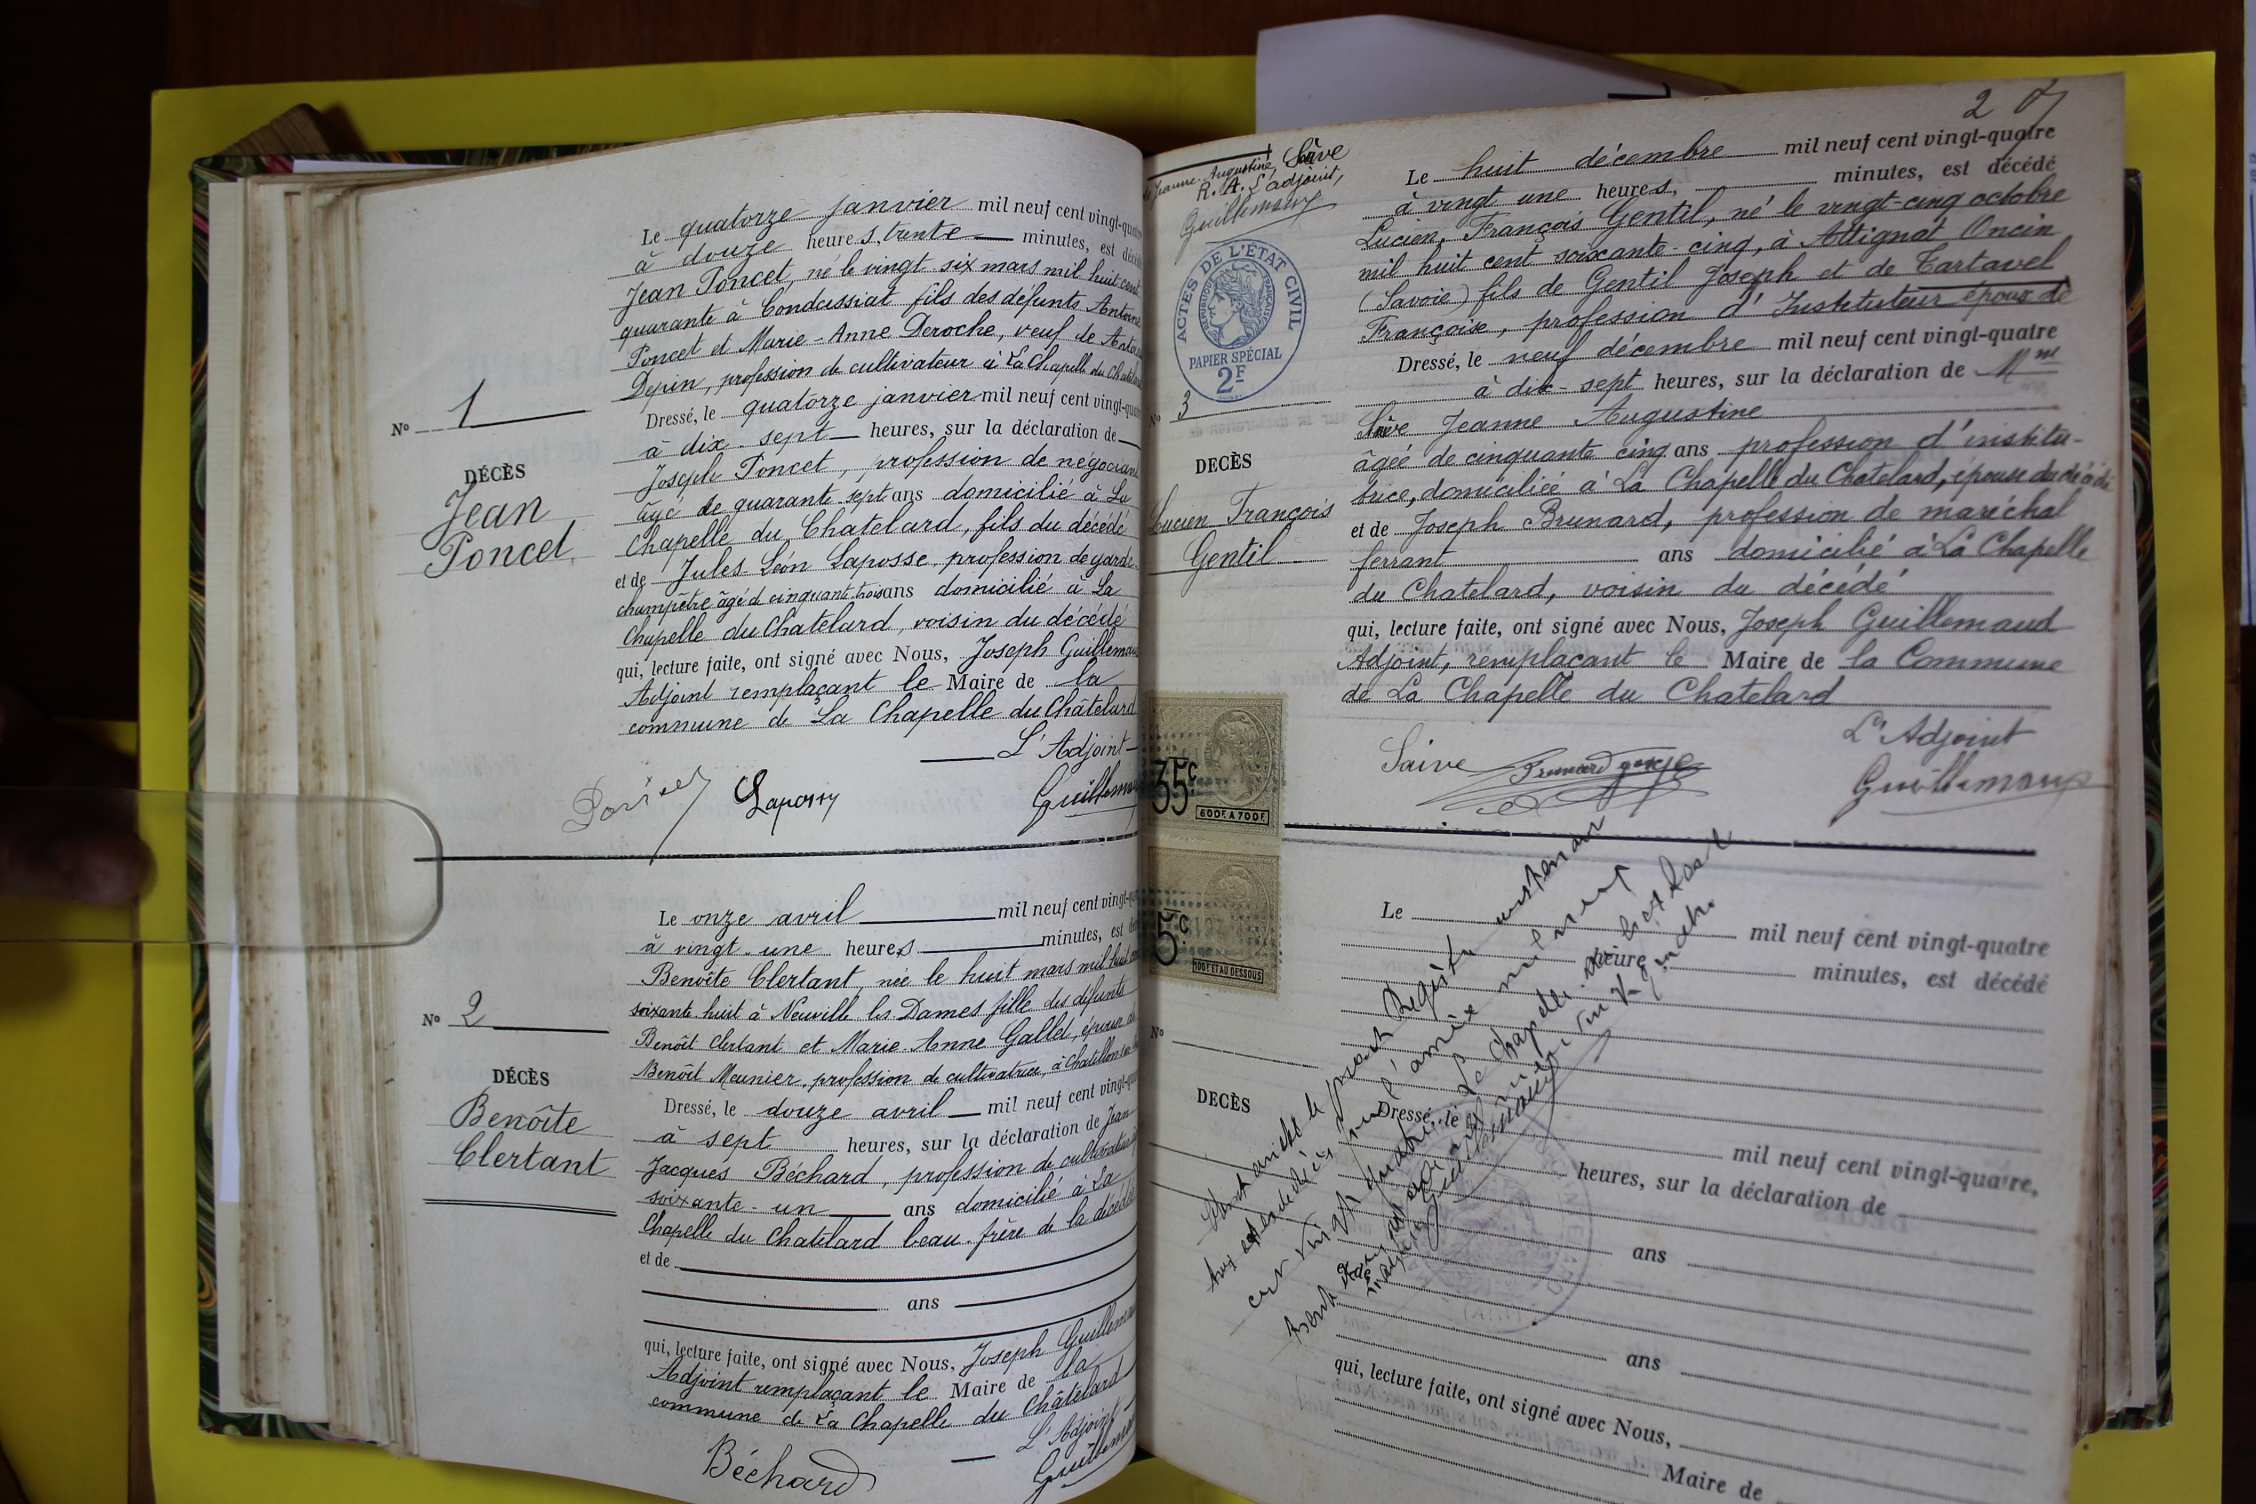 Le quatorze janvier mil neuf cent vingt-quatre
à douze heures, trente minutes, est décédé
Jean Poncet, né le vingt six mars mil huit cent
quarante à Condeissiat fils des défunts Antoine
Poncet et Marie-Anne Deroche, veuf de
Depin, profession de cultivateur à La Chapelle du Chatelard
Dressé, le quatorze janvier mil neuf cent vingt-quatre
à dix-sept heures, sur la déclaration de
Joseph Poncet, profession de négociant
âgé de quarante sept ans domicilié à La
Chapelle du Chatelard, fils du décédé
et de Jules Léon Laposse, profession de garde-
champêtre âgé de cinquante trois ans domicilié à La
Chapelle du Chatelard, voisin du décédé
qui, lecture faite, ont signé avec Nous, Joseph Guillemaud
Adjoint remplaçant le Maire de la
commune de La Chapelle du Châtelard
L'Adjoint
Guillemaud
N° 1
DÉCÈS
Jean
Poncet
Le onze avril mil neuf cent vingt-quatre
à vingt-une heures minutes, est
Benoîte Clertant, née le huit mars mil huit cent
soixante huit à Neuville les Dames fille des défunts
Benoît Clertant et Marie-Anne Gallet, épouse de
Benoît Meunier, profession de cultivatrice, à
Dressé, le douze avril mil neuf cent vingt-quatre
à sept heures, sur la déclaration de Jean
Jacques Béchard, profession de cultivateur
soixante-un ans domicilié à La
Chapelle du Chatelard beau-frère de la décédée
et de
ans
qui, lecture faite, ont signé avec Nous, Joseph Guillemaud
Adjoint remplaçant le Maire de la
commune de La Chapelle du Châtelard
L'Adjoint
Guillemaud
Béchard
N° 2
DÉCÈS
Benoîte
Clertant
2
Jeanne-Augustine, Sâive
R. A. L'adjoint,
Guillemaud
ACTES DE L'ÉTAT CIVIL
RÉPUBLIQUE FRANÇAISE
PAPIER SPÉCIAL
2F
N° 3
DECÈS
Lucien François
Gentil
Le huit décembre mil neuf cent vingt-quatre
à vingt une heures, minutes, est décédé
Lucien, François Gentil, né le vingt-cinq octobre
mil huit cent soixante-cinq, à Attignat Oncin
(Savoie) fils de Gentil Joseph et de Tartavel
Françoise, profession d'Instituteur époux de
Dressé, le neuf décembre mil neuf cent vingt-quatre
à dix-sept heures, sur la déclaration de Mme
Sâive Jeanne Augustine
âgée de cinquante cinq ans profession d'institu-
trice, domiciliée à La Chapelle du Chatelard, épouse du décédé
et de Joseph Brunard, profession de maréchal
ferrant ans domicilié à La Chapelle
du Chatelard, voisin du décédé
qui, lecture faite, ont signé avec Nous, Joseph Guillemaud
Adjoint, remplaçant le Maire de la Commune
de La Chapelle du Chatelard
L'Adjoint
Saive
Guillemaud
35c
600F. A 700F.
5c
100F. ET AU DESSOUS
N°
DECÈS
Le
mil neuf cent vingt-quatre
heure minutes, est décédé
Dressé, le mil neuf cent vingt-quatre,
heures, sur la déclaration de
ans
et de
ans
qui, lecture faite, ont signé avec Nous,
Maire de
le présent Registre